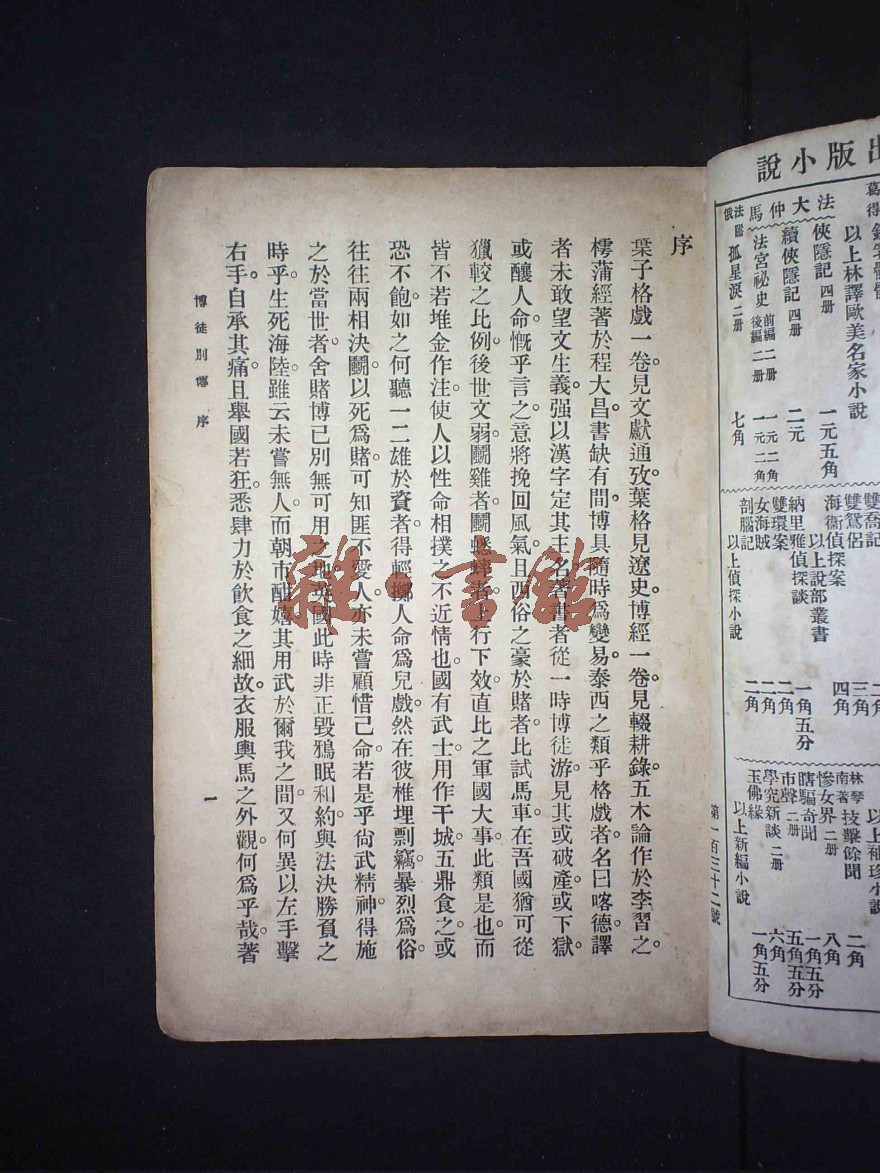 出版小說
葛得
鐵
以上林譯歐美名家小說
法大仲馬
俠隱記 四册 一元五角
續俠隱記 四册 二元
法宮祕史 前編二册 一元二角
後編二册 一元二角
法囂俄 孤星淚 二册 七角
雙喬記 二角
雙鴛侶 三角
海衞偵探案 四角
以上說部叢書
納里雅偵探談 一角五分
雙環案 二角
女海賊 二角
剖腦記 二角
以上偵探小說
以上袖珍小說
林琴南著 技擊餘聞 二角
慘女界 二册 八角
瞎騙奇聞 一角五分
市聲 二册 五角五分
學究新談 二册 六角
玉佛緣 一角五分
以上新編小說
第一百三十二號
序
葉子格戲一卷見文獻通攷。葉格見遼史。博經一卷。見輟耕錄。五木論作於李習之。
樗蒲經著於程大昌。書缺有間。博具隨時爲變易。泰西之類乎格戲者。名曰喀德。譯
者未敢望文生義。强以漢字定其主名。著書者從一時博徒游。見其或破產。或下獄。
或釀人命。慨乎言之。意將挽回風氣。且西俗之豪於賭者。比試馬車。在吾國猶可從
獵較之比例。後世文弱。鬭雞者。鬭蟋蟀者。上行下效。直比之軍國大事。此類是也。而
皆不若堆金作注。使人以性命相撲之不近情也。國有武士。用作干城。五鼎食之。或
恐不飽。如之何聽一二雄於資者。得輕擲人命爲兒戲。然在彼椎埋剽竊。暴烈爲俗。
往往兩相決鬭。以死爲賭。可知匪不愛人。亦未嘗顧惜己命。若是乎尙武精神。得施
之於當世者。舍賭博已別無可用之地。英國此時非正毀鴉眠利約。與法決勝負之
時乎。生死海陸。雖云未嘗無人。而朝市酣嬉。其用武於爾我之間。又何異以左手擊
右手。自承其痛。且舉國若狂。悉肆力於飮食之細故。衣服輿馬之外觀。何爲乎哉。著
博徒別傳 序
一
雜·書館